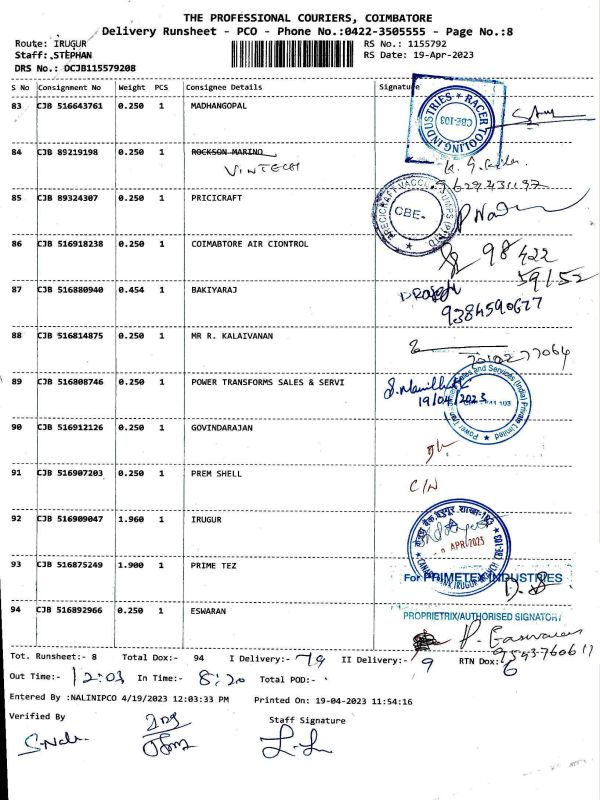 THE PROFESSIONAL COURIERS, COIMBATORE
Delivery Runsheet - PCO - Phone No.:0422-3505555 - Page No.:8
Route: IRUGUR RS No.: 1155792
Staff: STEPHAN RS Date: 19-Apr-2023
DRS No.: DCJB115579208
S No Consignment No Weight PCS Consignee Details Signature
83 CJB 516643761 0.250 1 MADHANGOPAL
RACER TOOLING INDUSTRIES CBE-103
84 CJB 89219198 0.250 1 ROCKSON MARINO
VINTECH
9629431197
85 CJB 89324307 0.250 1 PRICICRAFT
CBE-
86 CJB 516918238 0.250 1 COIMABTORE AIR CIONTROL
98422
59152
87 CJB 516880940 0.454 1 BAKIYARAJ
9384590677
88 CJB 516814875 0.250 1 MR R. KALAIVANAN
89 CJB 516808746 0.250 1 POWER TRANSFORMS SALES & SERVI
19/04/2023
Power Transforms Sales and Services (India) Private Limited
90 CJB 516912126 0.250 1 GOVINDARAJAN
91 CJB 516907203 0.250 1 PREM SHELL
C/N
92 CJB 516909047 1.960 1 IRUGUR
APR 2023
93 CJB 516875249 1.900 1 PRIME TEZ
For PRIMETEX INDUSTRIES
94 CJB 516892966 0.250 1 ESWARAN
PROPRIETRIX/AUTHORISED SIGNATORY
P. Easwaran
Tot. Runsheet:- 8 Total Dox:- 94 I Delivery:- 79 II Delivery:- 9 RTN Dox:- 6
Out Time:- 12:03 In Time:- 8:20 Total POD:-
Entered By :NALINIPCO 4/19/2023 12:03:33 PM Printed On: 19-04-2023 11:54:16
Verified By Staff Signature